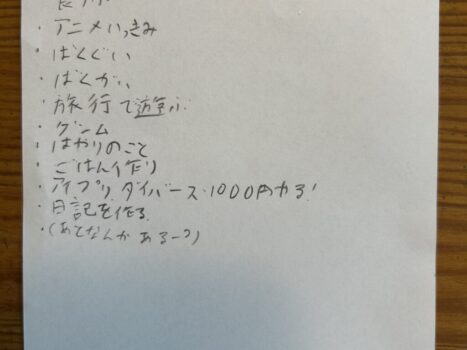 ・アニメいっきみ
・ばくぐい
・ばくがい
・旅行で遊ぶ
・ゲーム
・はやりのこと
・ごはん作り
・アイプリ ダイバース・1000円かる!
・日記を作る
・(あとなんかあるー?)